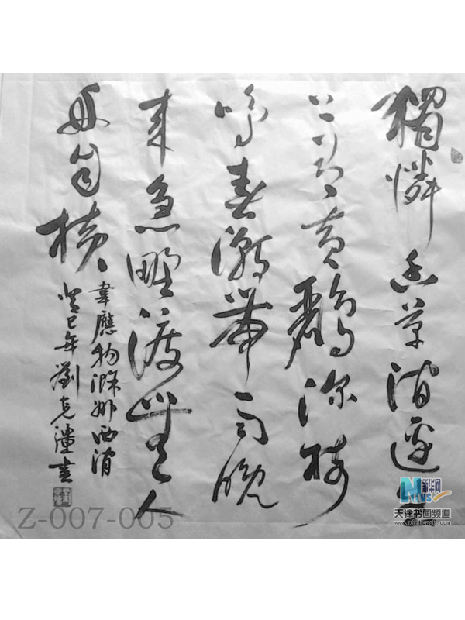 獨憐幽草澗邊生
上有黃鸝深樹
鳴春潮帶雨晚
來急野渡無人
舟自橫
韋應物滁州西澗
癸巳年劉克書
Z-007-005